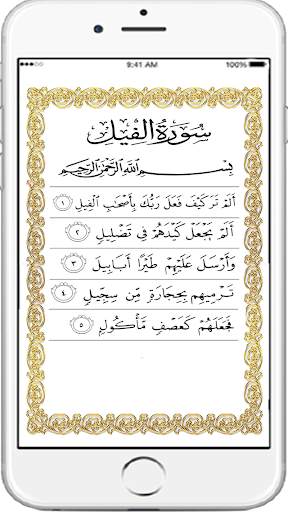 9:41 AM
100%
سُورَةُ الفِيلِ
بِسْمِ اللَّهِ الرَّحْمَنِ الرَّحِيمِ
أَلَمْ تَرَ كَيْفَ فَعَلَ رَبُّكَ بِأَصْحَابِ الْفِيلِ ١
أَلَمْ يَجْعَلْ كَيْدَهُمْ فِي تَضْلِيلٍ ٢
وَأَرْسَلَ عَلَيْهِمْ طَيْرًا أَبَابِيلَ ٣
تَرْمِيهِم بِحِجَارَةٍ مِّن سِجِّيلٍ ٤
فَجَعَلَهُمْ كَعَصْفٍ مَّأْكُولٍ ٥